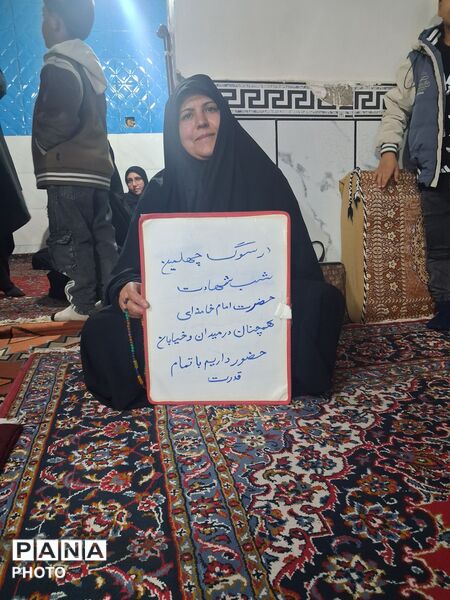 در سوگ چهلمین
شب شهادت
حضرت امام خامنه‌ای
همچنان در میدان و خیابان
حضور داریم با تمام
قدرت
PANA
PHOTO